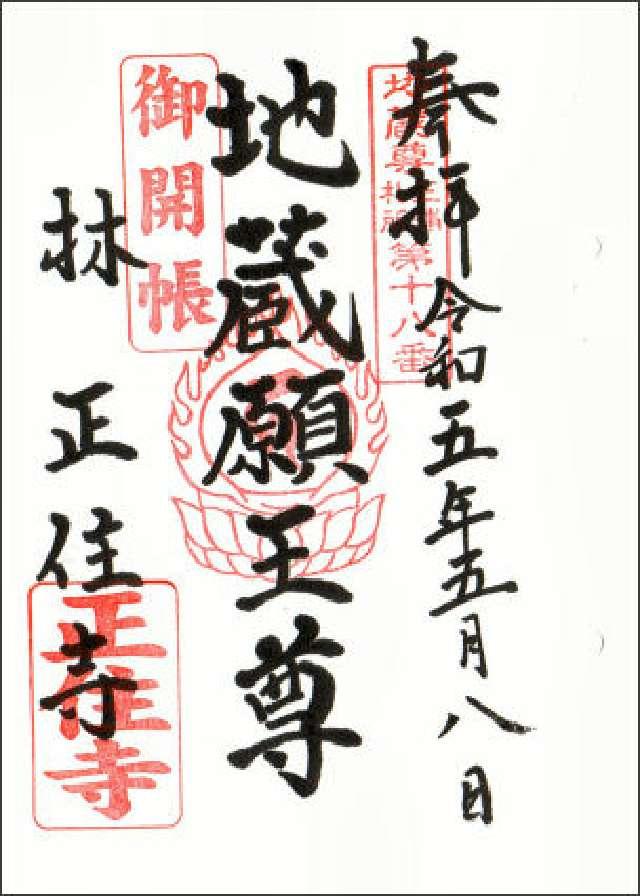 奉拝 令和五年五月八日
地蔵尊
第十八番
地蔵願王尊
御開帳
林 正住寺
正住寺